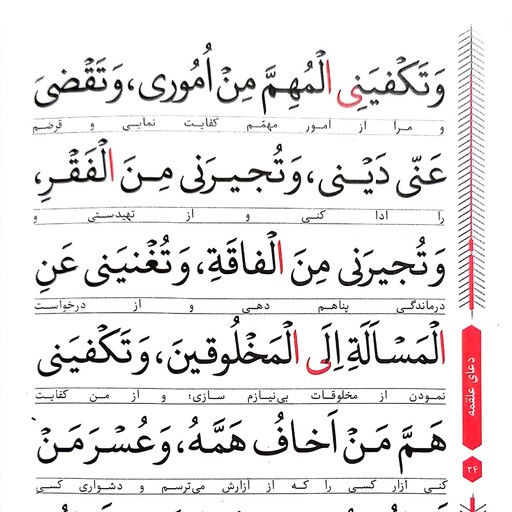 وَتَكْفِيَنِى الْمُهِمَّ مِنْ اُمُورى، وَتَقْضىَ
و مرا از امور مهمّم کفایت نمایی و قرضم
عَنّى دَيْنى، وَتُجيرَنى مِنَ الْفَقْرِ،
را ادا کنی و از تهیدستی و
وَتُجيرَنى مِنَ الْفاقَةِ، وَتُغْنيَنى عَنِ
درماندگی پناهم دهی و از درخواست
الْمَسْاَلَةِ اِلَى الْمَخْلُوقينَ، وَتَكْفيَنى
نمودن از مخلوقات بی‌نیازم سازی؛ و از من کفایت
هَمَّ مَنْ اَخافُ هَمَّهُ، وَعُسْرَ مَنْ
کنی آزار کسی را که از آزارش می‌ترسم و دشواری کسی
دعای علقمه
۲۴